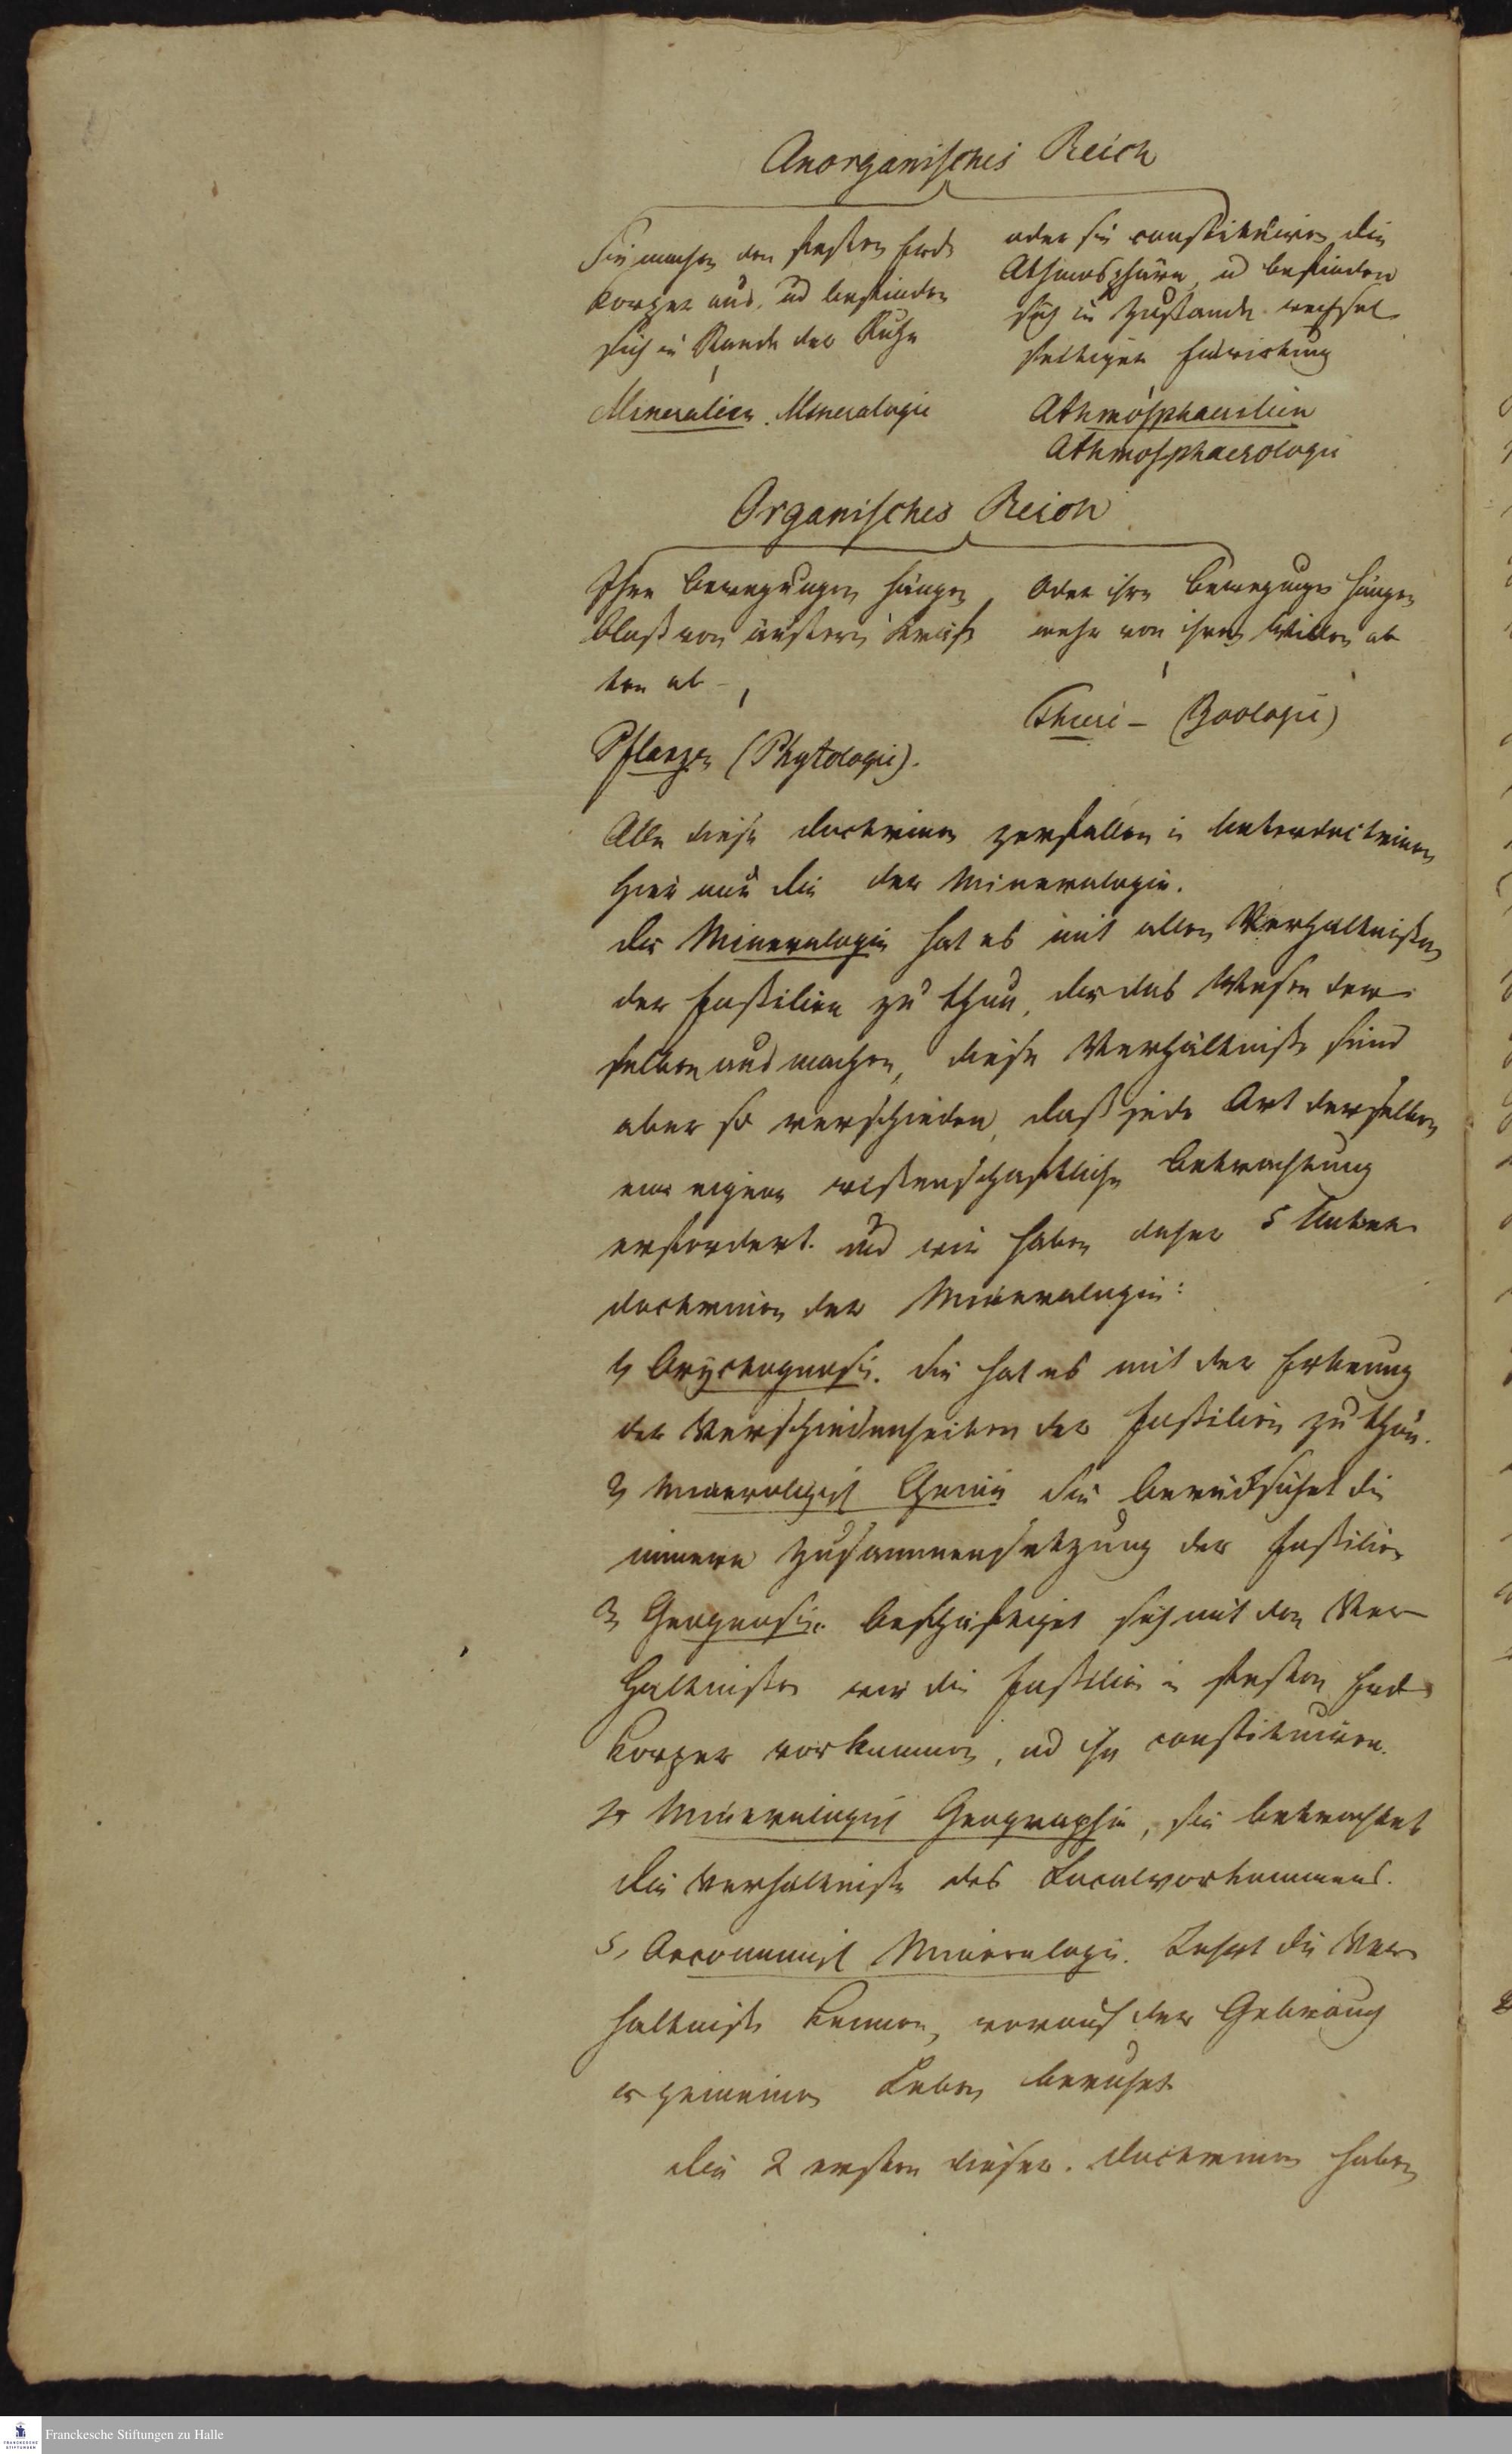 Anorganisches Reich
Sie machen den festen Erd-
korper aus, ud befinden
sich in Stande der Ruhe
Mineralien. Mineralogie
oder sie constituiren die
Athmosphäre, u befinden
sich in Zustande wechsel
seitigen Einwirkung
Athmosphaerilien
Athmosphaerologie
Organisches Reich
Ihre Bewegungen hängen
bloß von äußern Kräf
ten ab –
Pflanzen (Phytologie).
Oder ihre Bewegungen hängen
mehr von ihren Willen ab
Thiere – (Zoologie)
Alle diese Doctrinen zerfallen in Unterdoctrinen
hier nur die der Mineralogie.
Die Mineralogie hat es mit allen Verhaltnißen
der Foßilien zu thun, die das Wesen der
selben ausmachen, diese Verhältniße sind
aber so verschieden, daß jede Art derselben
eine eigene wißenschaftliche Betrachtung
erfordert. und wir haben daher 5 Unter
doctrinen der Mineralogie:
1, Oryctognosie. die hat es mit der Erkenung
der Verschiedenheiten der Foßilien zu thun.
2, Mineralogisch Chemie die berücksicht die
innere Zusammensetzung der Foßilien
3, Geognosie. beschäftiget sich mit den Ver-
haltnißen wie die Foßilien in festen Erd-
korper vorkommen, ud ihn constituiren.
4 Mineralogisch Geographie, sie betrachtet
die Verhaltniße des Localvorkommens.
5, Oeconomisch Mineralogie. Lehrt die Ver
haltniße kennen, worauf der Gebrauch
in gemeinen Leben beruhet
Die 2 ersten dieser Doctrinen haben
Franckesche Stiftungen zu Halle